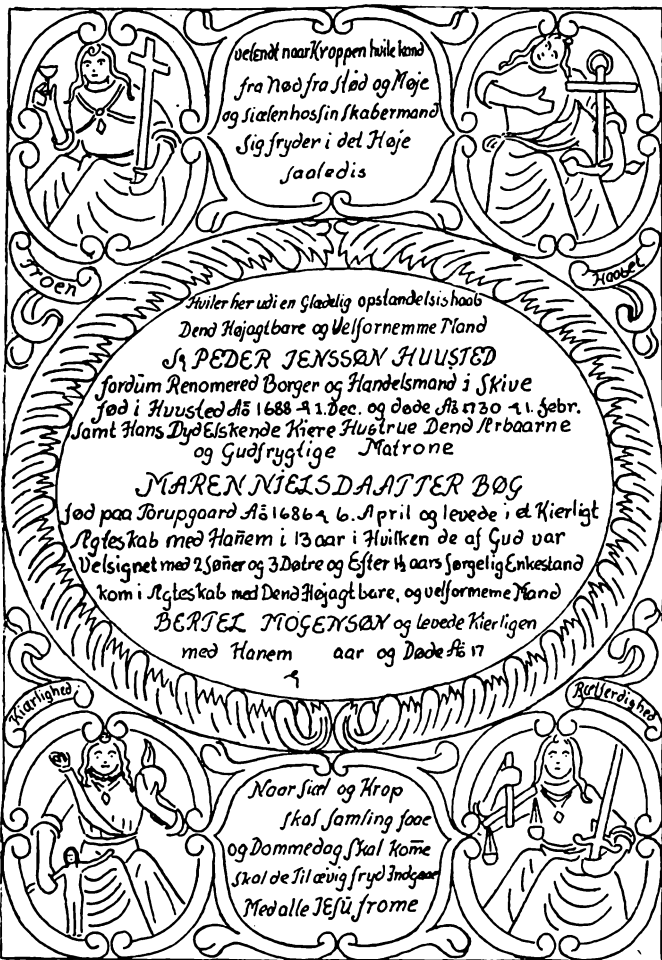 velendt naar Kroppen hvile kand
fra Nød fra stød og Møje
og siælen hos sin skabermand
sig fryder i det Høje
saaledis
Troen
Haabet
Hviler her udi en Glædelig opstandelsis haab
Dend Højagtbare og Velfornemme Mand
Sr PEDER JENSSØN HUUSTED
fordum Renomered Borger og Handelsmand i Skive
fød i Huusted Aō 1688 d 1. Dec. og døde Aō 1730 d 1. febr.
samt Hans Dyd Elskende Kiere Hustrue Dend Ærbaarne
og Gudfrygtige Matrone
MAREN NIELSDAATTER BØG
fød paa Torupgaard Aō 1686 d 6. April og levede i et Kierligt
Ægteskab med Hañem i 13 aar i Hvilken de af Gud var
Velsignet med 2 søñer og 3 Døtre og Efter 1½ aars sørgelig Enkestand
kom i Ægteskab med Dend Højagtbare, og velfornemme Mand
BERTEL MOGENSØN og levede Kierligen
med Hanem aar og Døde Aō 17
d
Kiærlighed
Rætferdighed
Naar siæl og Krop
skal samling faae
og Dommedag skal kom̄e
skal de Til ævig fryd Indgaae
Med alle JEsū frome